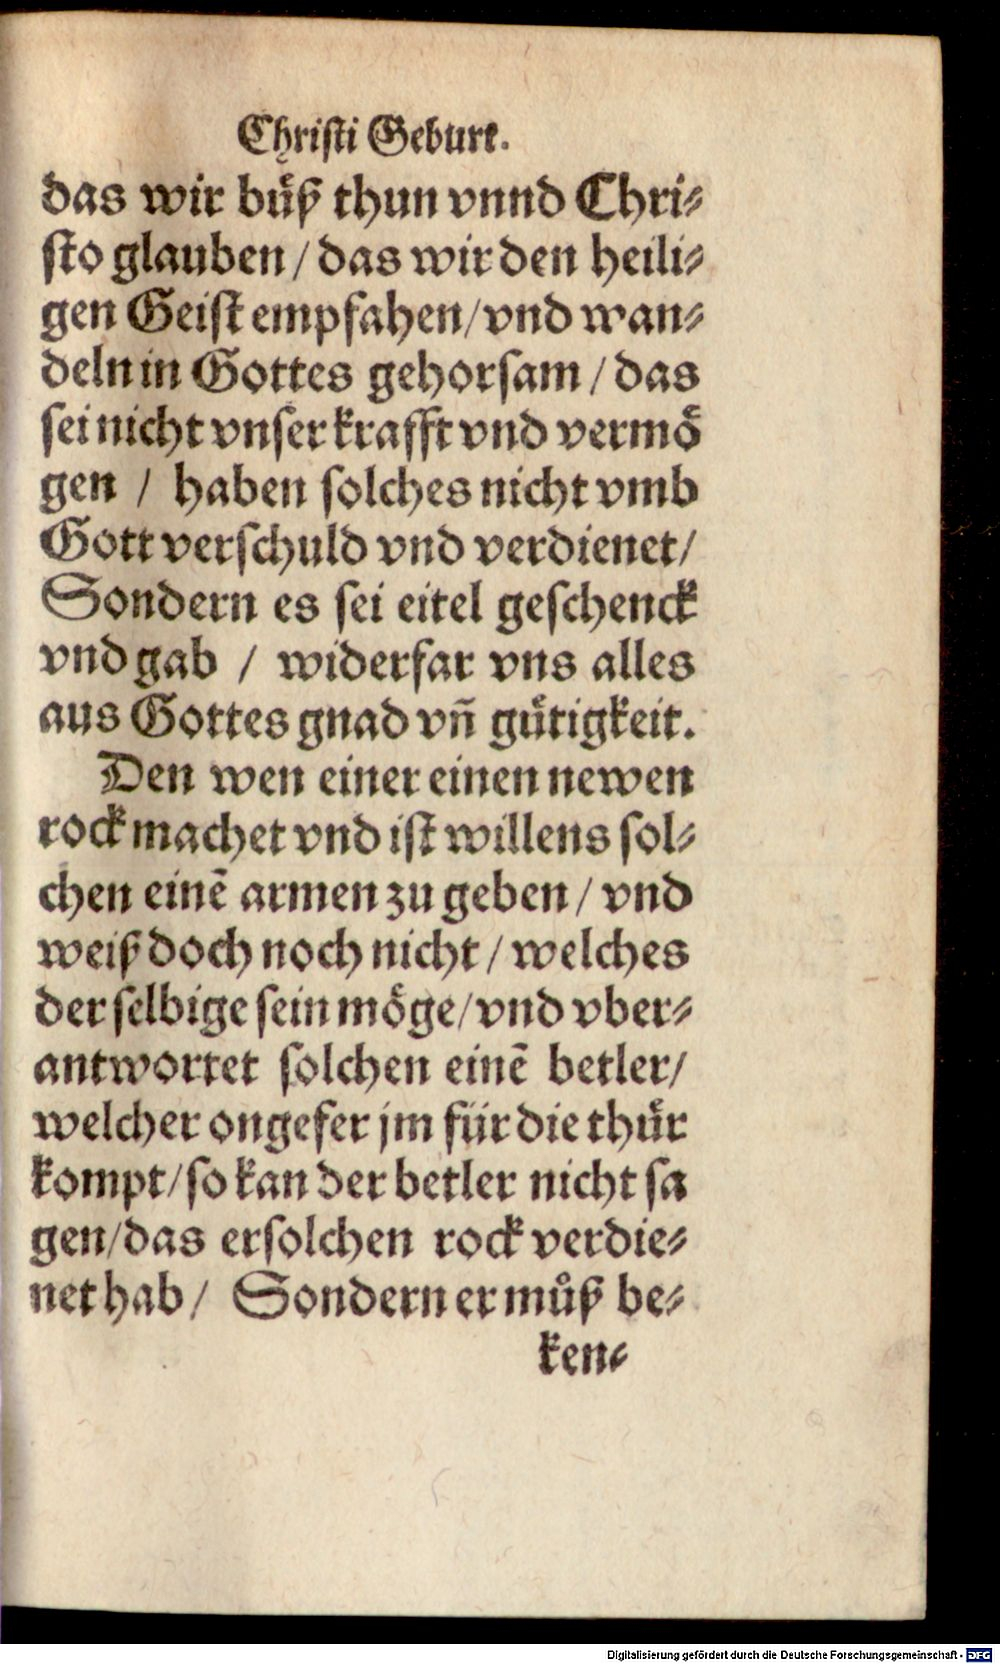 Christi Geburt.
das wir buͤß thun vnnd Chri⸗
sto glauben / das wir den heili⸗
gen Geist empfahen / vnd wan⸗
deln in Gottes gehorsam / das
sei nicht vnser krafft vnd vermoͤ
gen / haben solches nicht vmb
Gott verschuld vnd verdienet /
Sondern es sei eitel geschenck
vnd gab / widerfar vns alles
aus Gottes gnad vn̄ guͤtigkeit.
Den wen einer einen newen
rock machet vnd ist willens sol⸗
chen einē armen zu geben / vnd
weiß doch noch nicht / welches
der selbige sein moͤge / vnd vber⸗
antwortet solchen einē betler /
welcher ongefer jm für die thuͤr
kompt / so kan der betler nicht sa
gen / das er solchen rock verdie⸗
net hab / Sondern er muͦß be⸗
ken⸗
Digitalisierung gefördert durch die Deutsche Forschungsgemeinschaft - DFG